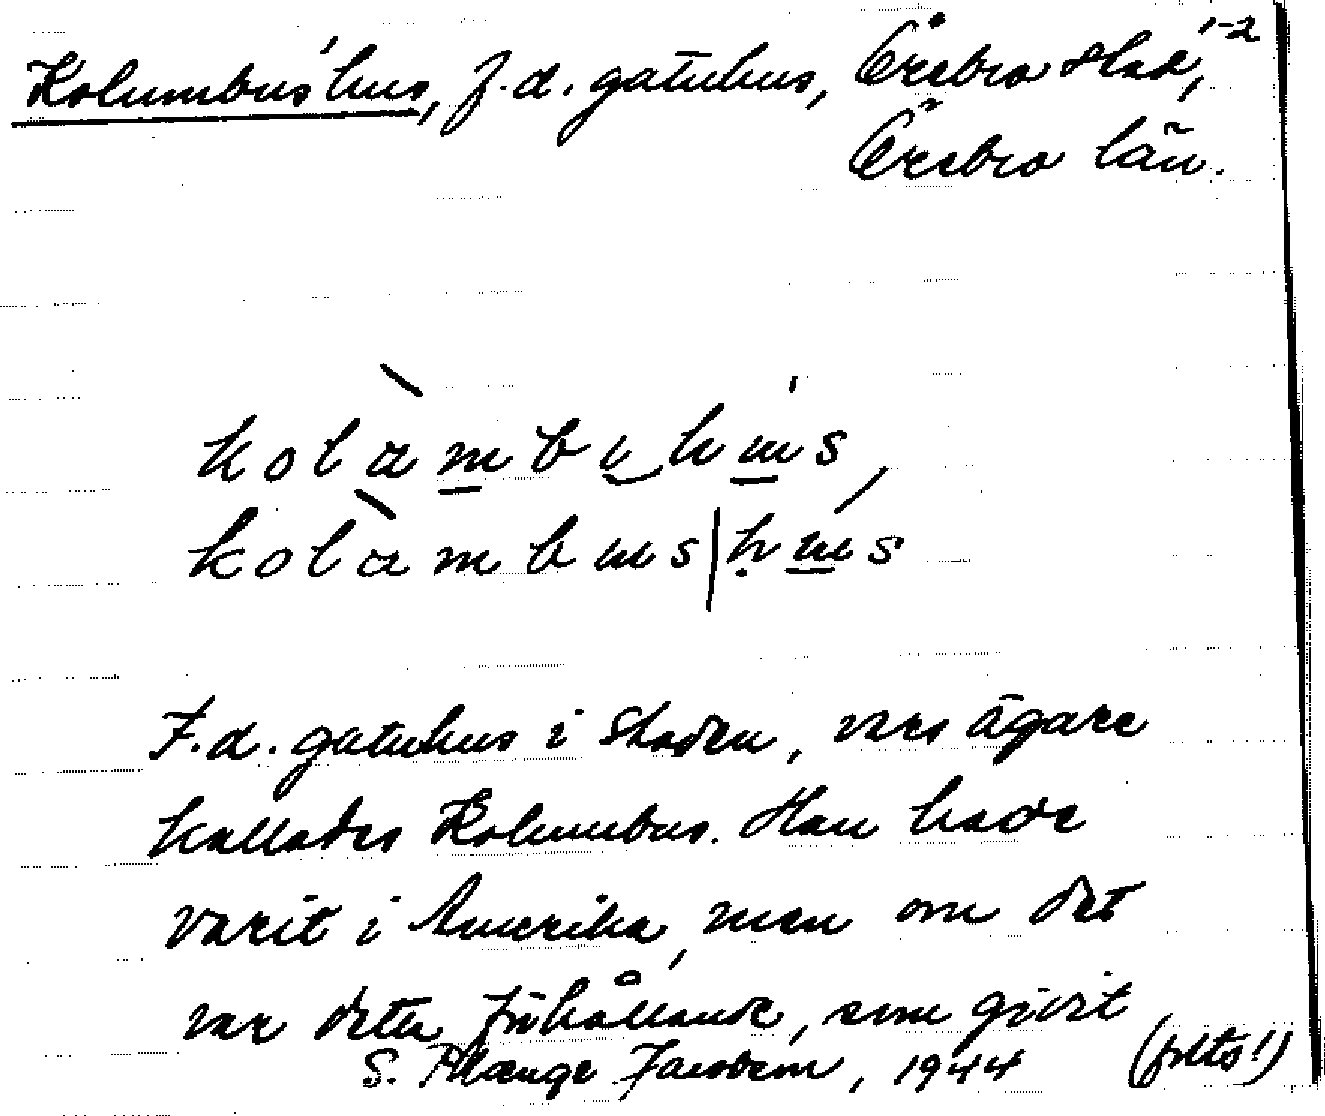 Kolumbus'hus, f.d. gatuhus, Örebro stad, 1-2
Örebro län.
kolàmbuhus,
kolàmbus|hús
F.d. gatuhus i staden, vars ägare
kallades Kolumbus. Han hade
varit i Amerika, men om det
var detta förhållande, som givit
S. Plænge Jacobson, 1944 (forts!)